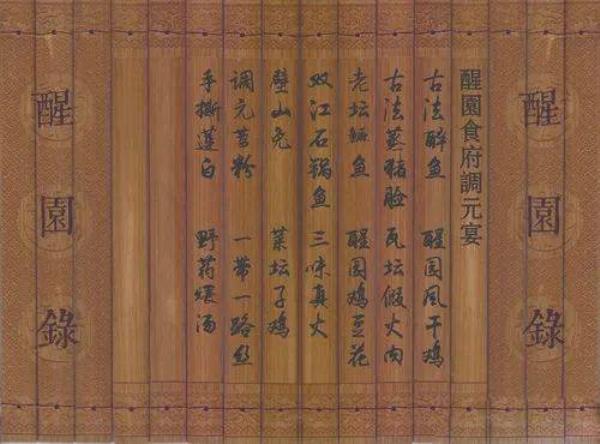 醒園錄
醒園食府調元宴
古法醉鱼 醒园风干鸡
古法蒸猪脸 瓦坛假火肉
老坛 鱼 醒园鸡豆花
双江石锅鱼 三味真火
璧山兔 菜坛子鸡
调元苕粉 一带一路丝
手撕莲白 野药煨汤
醒園錄